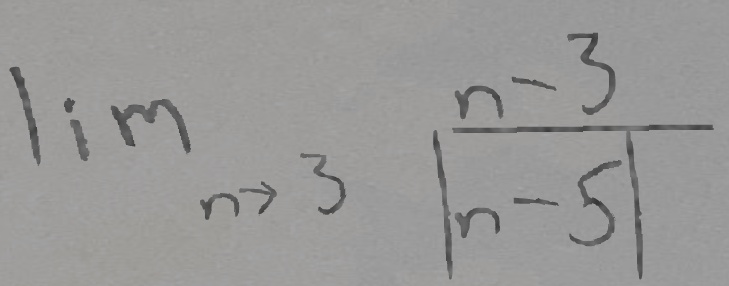 lim n→3 n-3
|n-5|